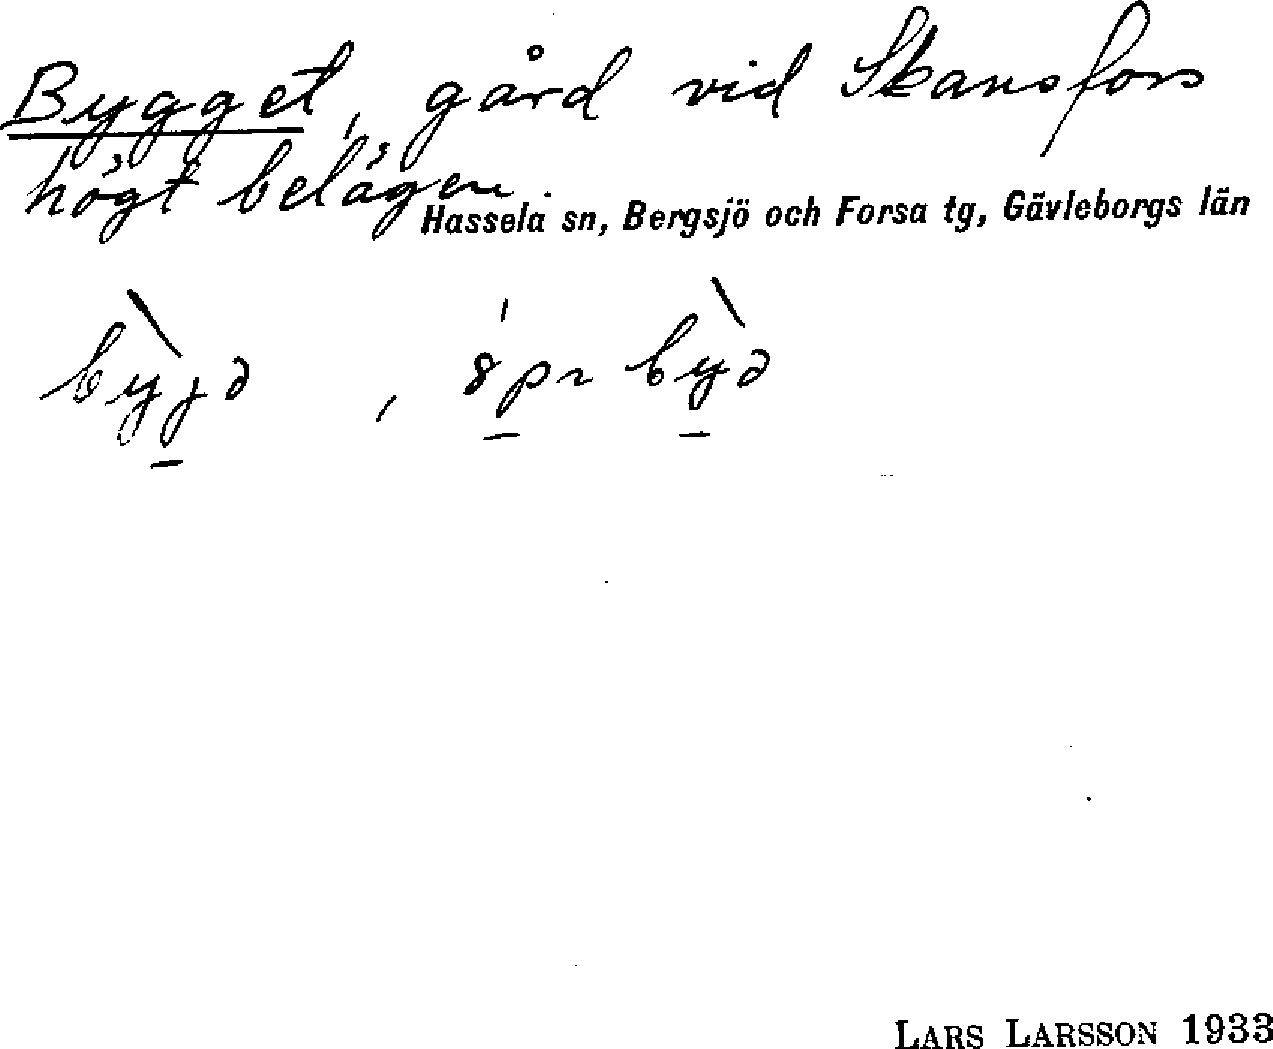 Bygget, gård vid Skansfors
högt belägen.
Hassela sn, Bergsjö och Forsa tg, Gävleborgs län
bỳjə, spr bỳə
LARS LARSSON 1933